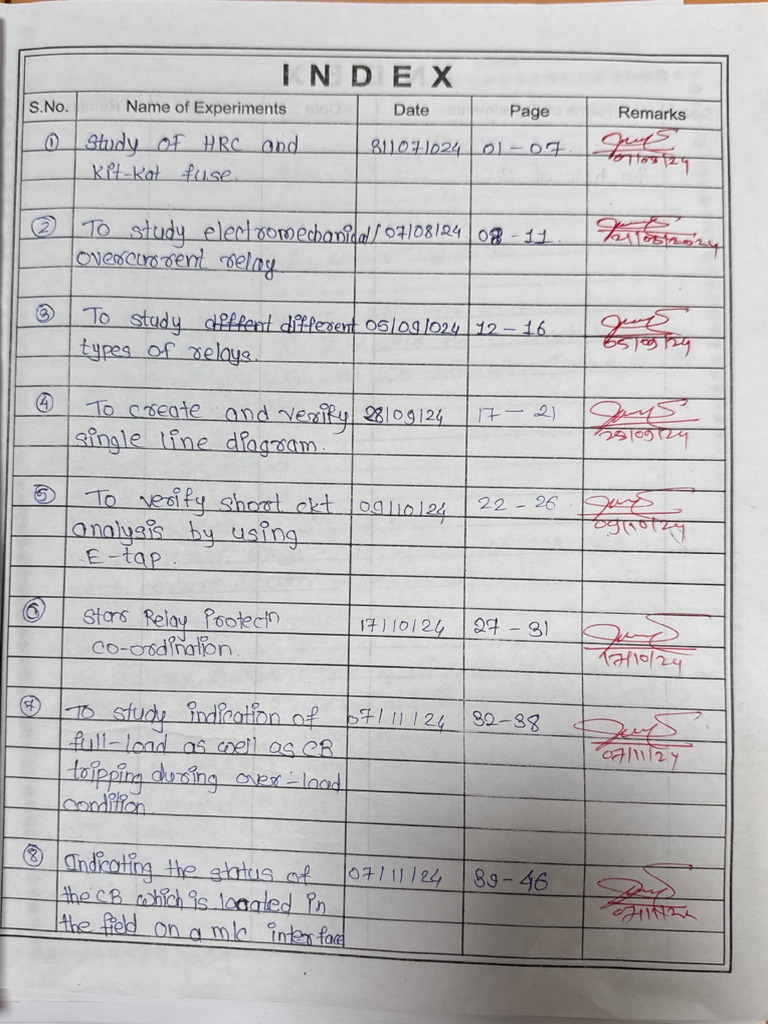 INDEX
S.No. Name of Experiments Date Page Remarks
① Study of HRC and 311071024 01-07
Kit-Kat fuse. 01/08/24
② To study electromechanical 07/08/24 08-11
overcurrent relay. 21/08/2024
③ To study different 05/09/024 12-16
types of relays. 05/09/24
④ To create and verify 28/09/24 17-21
single line diagram. 25/09/24
⑤ To verify short ckt 09/10/24 22-26
analysis by using 09/10/24
E-tap.
⑥ Stars Relay Protectn 17/10/24 27-31
co-ordination. 17/10/24
⑦ To study indication of 07/11/24 32-38
full-load as well as CB 07/11/24
tripping during over-load
condition.
⑧ Indicating the status of 07/11/24 39-46
the CB which is located in
the field on a m/c interface